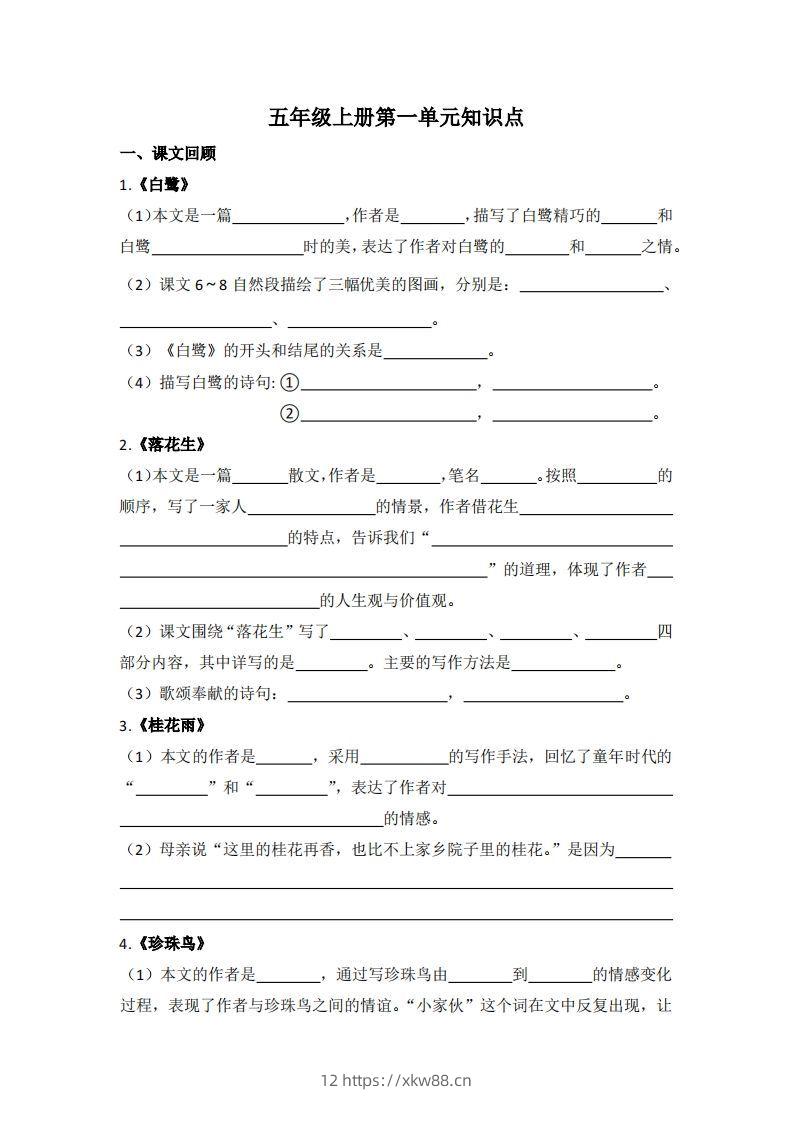 五年级上册第一单元知识点
一、课文回顾
1.《白鹭》
（1）本文是一篇______________，作者是________，描写了白鹭精巧的_______和
白鹭___________________时的美，表达了作者对白鹭的________和_______之情。
（2）课文 6～8 自然段描绘了三幅优美的图画，分别是：__________________、
___________________、__________________。
（3）《白鹭》的开头和结尾的关系是_____________。
（4）描写白鹭的诗句: ①______________________，____________________。
②______________________，____________________。
2.《落花生》
（1）本文是一篇_______散文，作者是________，笔名_______。按照__________的
顺序，写了一家人________________的情景，作者借花生___________________
_____________________的特点，告诉我们“______________________________
______________________________________________”的道理，体现了作者___
_________________________的人生观与价值观。
（2）课文围绕“落花生”写了_________、_________、_________、_________四
部分内容，其中详写的是_________。主要的写作方法是_____________。
（3）歌颂奉献的诗句：____________________，____________________。
3.《桂花雨》
（1）本文的作者是_______，采用___________的写作手法，回忆了童年时代的
“_________”和“_________”，表达了作者对____________________________
_________________________________的情感。
（2）母亲说“这里的桂花再香，也比不上家乡院子里的桂花。”是因为_______
_____________________________________________________________________
_____________________________________________________________________
4.《珍珠鸟》
（1）本文的作者是________，通过写珍珠鸟由________到________的情感变化
过程，表现了作者与珍珠鸟之间的情谊。“小家伙”这个词在文中反复出现，让
12 https://xkw88.cn